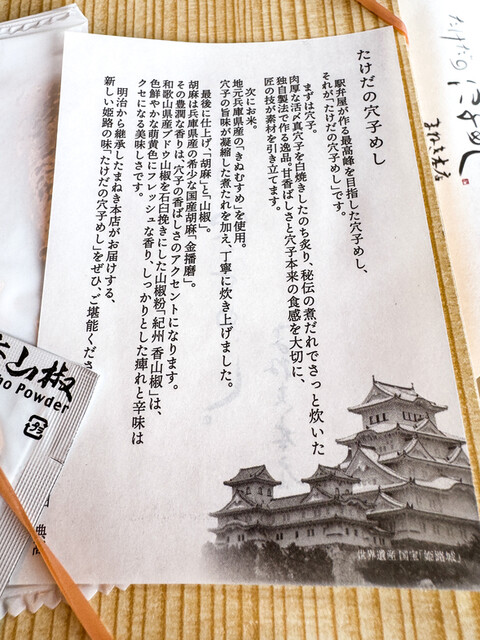 たけだの穴子めし
駅弁屋が作る最高峰を目指した穴子めし、
それが「たけだの穴子めし」です。
まずは穴子。
肉厚な活〆真穴子を白焼きしたのち炙り、秘伝の煮だれでさっと炊いた
独自製法で作る逸品。甘香ばしさと穴子本来の食感を大切に、
匠の技が素材を引き立てます。
次にお米。
地元兵庫県産の「きぬむすめ」を使用。
穴子の旨味が凝縮した煮たれを加え、丁寧に炊き上げました。
最後に仕上げ、「胡麻」と「山椒」。
胡麻は兵庫県産の希少な国産胡麻、「金播磨」。
その豊潤な香りは、穴子の香ばしさのアクセントになります。
和歌山県産ブドウ山椒を石臼挽きにした山椒粉「紀州 香山椒」は、
色鮮やかな萌黄色にフレッシュな香り、しっかりとした痺れと辛味は
クセになる美味しさです。
明治から継承したまねき本店がお届けする、
新しい姫路の味「たけだの穴子めし」をぜひ、ご堪能くださ
世界遺産 国宝「姫路城」
山椒
ho Powder
プラ
たけだの穴子めし
まねき本店